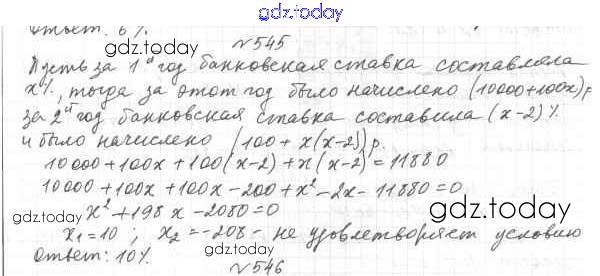 gdz.today
Ответ: 6%.
gdz.today
№545
Пусть за 1й год банковская ставка составляла
x%, тогда за этот год было начислено (10000+100x)р
за 2й год банковская ставка составила (x-2)%
и было начислено (100+x(x-2))р.
10000+100x+100(x-2)+x(x-2)=11880
10000+100x+100x-200+x²-2x-11880=0
gdz.today
x²+198x-2080=0
gdz.today
x₁=10; x₂=-208- не удовлетворяет условию
Ответ: 10%.
gdz.today
№546